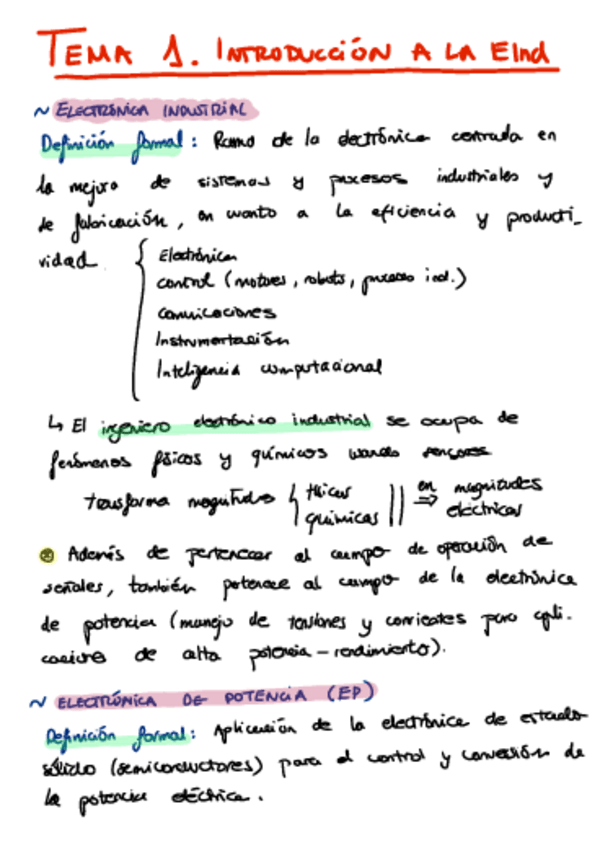 TEMA 1. INTRODUCCIÓN A LA EInd
~ ELECTRÓNICA INDUSTRIAL
Definición formal: Rama de la electrónica centrada en
la mejora de sistemas y procesos industriales y
de fabricación, en cuanto a la eficiencia y producti_
vidad
Electrónica
control (motores, robots, procesos ind.)
Comunicaciones
Instrumentación
Inteligencia computacional
↳ El ingeniero electrónico industrial se ocupa de
fenómenos físicos y químicos usando sensores
transforma magnitudes { físicas químicas || en ⇒ magnitudes eléctricas
Además de pertenecer al campo de operación de
señales, también pertenece al campo de la electrónica
de potencia (manejo de tensiones y corrientes para apli-
caciones de alta potencia - rendimiento).
~ ELECTRÓNICA DE POTENCIA (EP)
Definición formal: Aplicación de la electrónica de estado
sólido (semiconductores) para el control y conversión de
la potencia eléctrica.